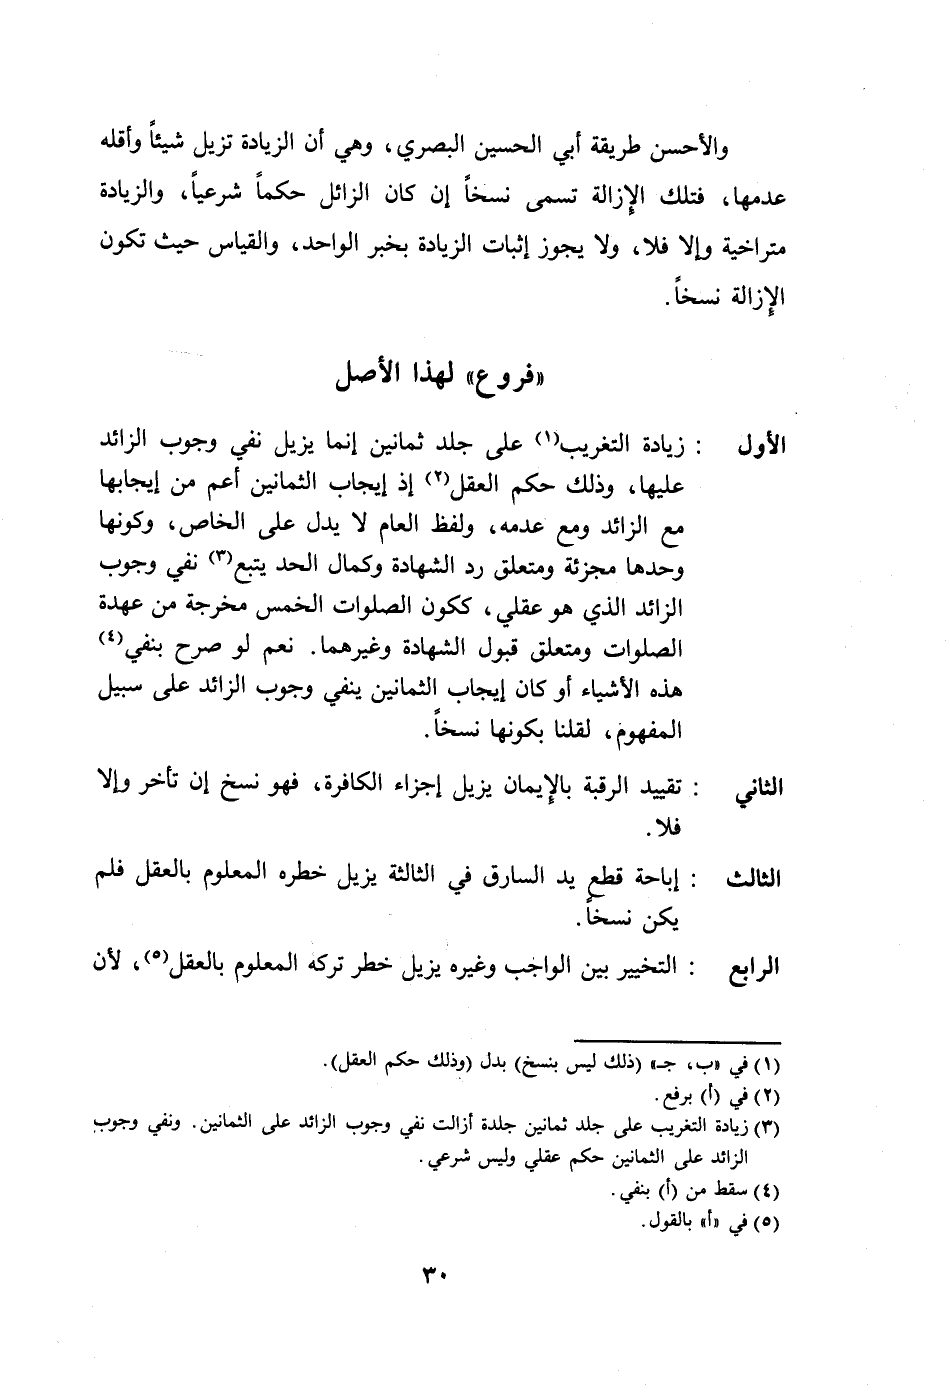 والأحسن طريقة أبي الحسين البصري، وهي أن الزيادة تزيل شيئاً وأقله
عدمها، فتلك الإزالة تسمى نسخاً إن كان الزائل حكماً شرعياً، والزيادة
متراخية وإلا فلا، ولا يجوز إثبات الزيادة بخبر الواحد، والقياس حيث تكون
الإزالة نسخاً.
«فروع» لهذا الأصل
الأول : زيادة التغريب(١) على جلد ثمانين إنما يزيل نفي وجوب الزائد
عليها، وذلك حكم العقل(٢) إذ إيجاب الثمانين أعم من إيجابها
مع الزائد ومع عدمه، ولفظ العام لا يدل على الخاص، وكونها
وحدها مجزئة ومتعلق رد الشهادة وكمال الحد يتبع(٣) نفي وجوب
الزائد الذي هو عقلي، ككون الصلوات الخمس مخرجة من عهدة
الصلوات ومتعلق قبول الشهادة وغيرهما. نعم لو صرح بنفي(٤)
هذه الأشياء أو كان إيجاب الثمانين ينفي وجوب الزائد على سبيل
المفهوم، لقلنا بكونها نسخاً.
الثاني : تقييد الرقبة بالإيمان يزيل إجزاء الكافرة، فهو نسخ إن تأخر وإلا
فلا.
الثالث : إباحة قطع يد السارق في الثالثة يزيل خطره المعلوم بالعقل فلم
يكن نسخاً.
الرابع : التخيير بين الواجب وغيره يزيل خطر تركه المعلوم بالعقل(٥)، لأن
(١) في «ب، جـ» (ذلك ليس بنسخ) بدل (وذلك حكم العقل).
(٢) في (أ) برفع.
(٣) زيادة التغريب على جلد ثمانين جلدة أزالت نفي وجوب الزائد على الثمانين. ونفي وجوب
الزائد على الثمانين حكم عقلي وليس شرعي.
(٤) سقط من (أ) بنفي.
(٥) في «أ» بالقول.
٣٠